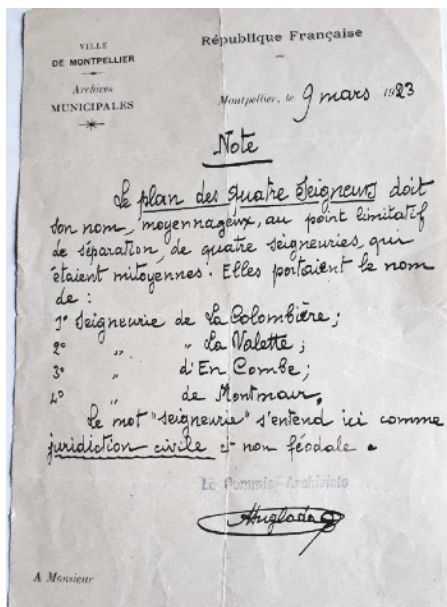 VILLE
DE MONTPELLIER
Archives
MUNICIPALES
République Française
Montpellier, le 9 mars 1923
Note
Le plan des Quatre Seigneurs doit
son nom, moyennageux, au point limitatif
de séparation, de quatre seigneuries, qui
étaient mitoyennes. Elles portaient le nom
de :
1º Seigneurie de La Colombière ;
2º „ „ La Valette ;
3º „ d'En Combe ;
4º „ de Montmaur.
Le mot "seigneurie" s'entend ici comme
juridiction civile et non féodale.
Le Commis-Archiviste
A Monsieur